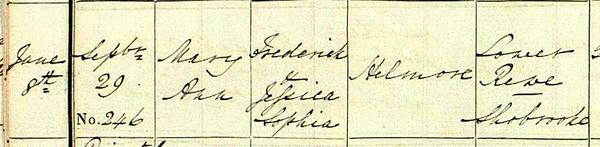 June 8th
Septbr 29
No. 246
Mary Ann
Frederick & Jessica Sophia
Helmore
Lower Rewe
Shobrooke